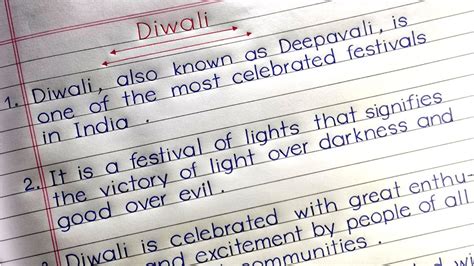 Diwali
1. Diwali, also known as Deepavali, is
one of the most celebrated festivals
in India .
2. It is a festival of lights that signifies
the victory of light over darkness and
good over evil .
Diwali is celebrated with great enthu-
and excitement by people of all
communities .